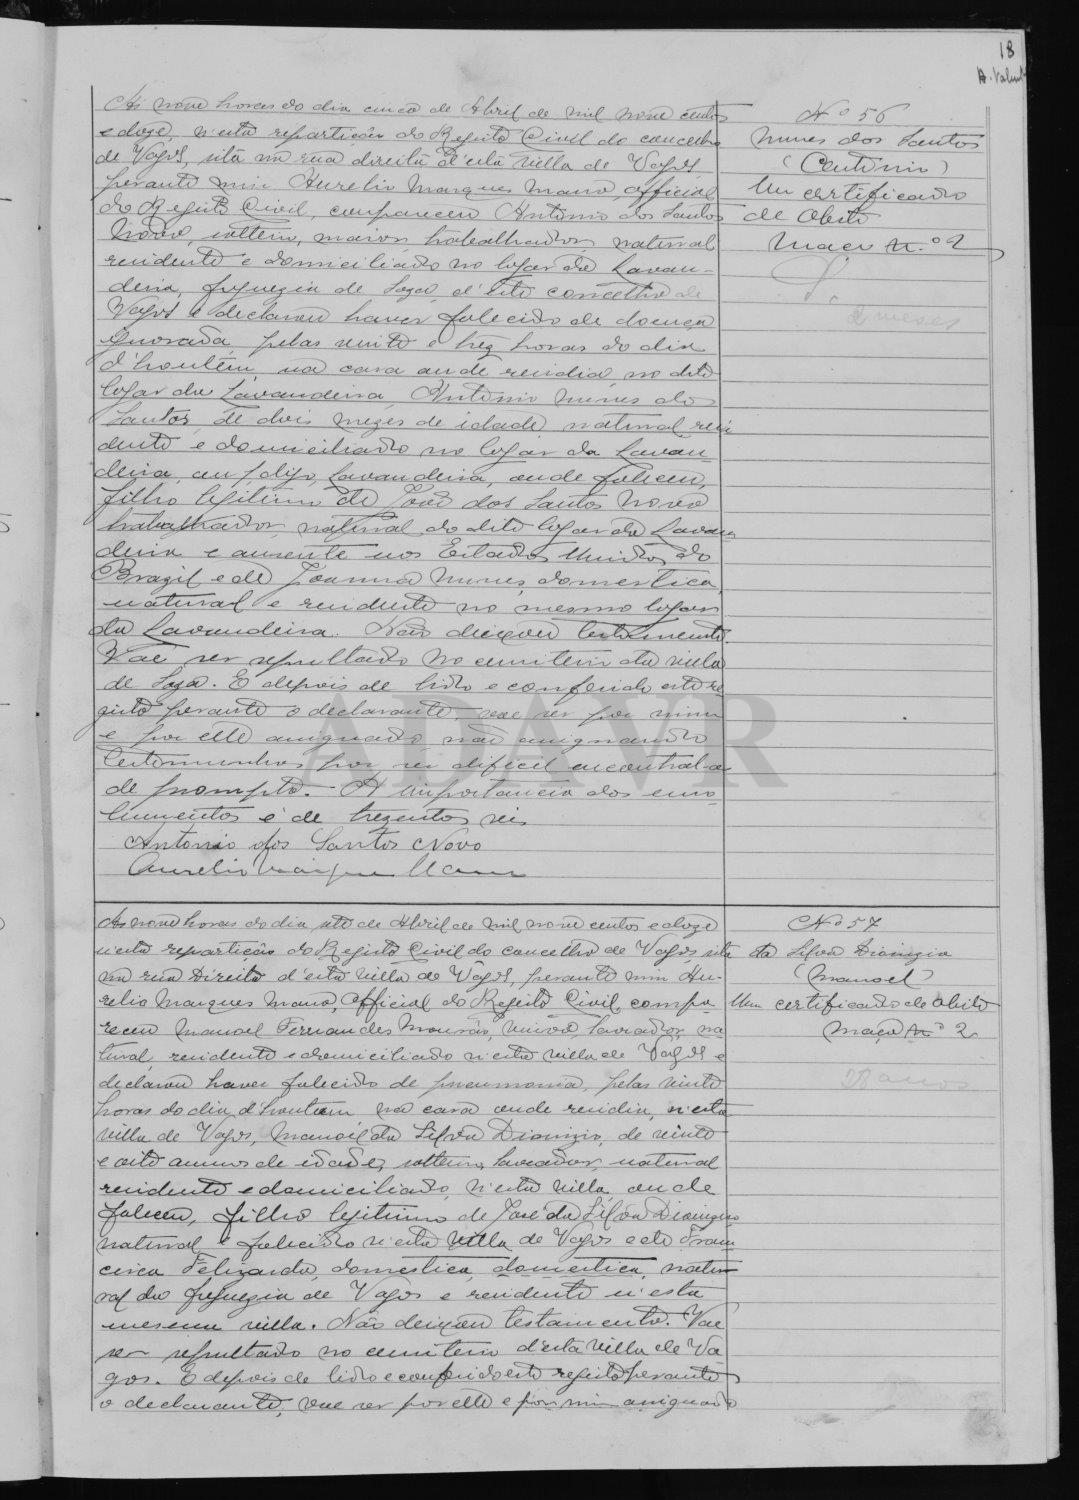 18
A. Valente
Ás nove horas do dia cinco de Abril de mil nove centos
e doze, n'esta repartição do Registo Civil do concelho
de Vagos, sita na rua direita d'esta villa de Vagos,
perante mim Aurelio Marques Mano, official
do Registo Civil, compareceu Antonio dos Santos
Novo, solteiro, maior, trabalhador, natural
residente e domiciliado no logar da Lavan-
deira, freguezia de Soza, d'este concelho de
Vagos e declarou haver fallecido de doença
ignorada, pelas vinte e trez horas do dia
d'hontem, na casa onde residia, no dito
logar da Lavandeira, Antonio Nunes dos
Santos, de dois mezes de idade, natural, resi
dente e domiciliado no logar da Lavan-
deira, ou, digo, Lavandeira, onde faleceu,
filho legitimo de João dos Santos Novo
trabalhador, natural do dito logar da Lavan
deira e ausente nos Estados Unidos do
Brazil e de Joanna Nunes, domestica,
natural e residente no mesmo logar
da Lavandeira. Não deixou testamento.
Vae ser sepultado no cemiterio da villa
de Soza. E depois de lido e conferido este re-
gisto perante o declarante, vae ser por mim
e por elle assignado não assignando
testemunhas por ser dificil encontral-as
de prompto. A importancia dos emo-
lumentos é de trezentos reis
Antonio dos Santos Novo
Aurelio Marques Mano
Nº 56
Nunes dos Santos
(Antonio)
Um certificado
de obito
Maço n.º 2
2 meses
ADAVR
Ás nove horas do dia oito de Abril de mil nove centos e doze
n'esta repartição do Registo Civil do concelho de Vagos, sita
na rua Direita d'esta villa de Vagos, perante mim Au-
relio Marques Mano, official do Registo Civil, compa
receu Manoel Fernandes Mourão, viuvo, lavrador, na
tural, residente e domiciliado n'esta villa de Vagos e
declarou haver falecido de pneumonia, pelas vinte
horas do dia d'hontem na casa onde residia, n'esta
villa de Vagos, Manoel da Silva Dionizio, de vinte
e oito annos de idade, solteiro, lavrador, natural
residente e domiciliado, n'esta villa, onde
faleceu, filho legitimo de José da Silva Dionizio
natural e falecido n'esta villa de Vagos e de Fran
cisca Felizarda, domestica, domestica, natu
ral da freguezia de Vagos e residente n'esta
mesma villa. Não deixou testamento. Vae
ser sepultado no cemiterio d'esta villa de Va
gos. E depois de lido e conferido este registo perante
o declarante, vae ser por elle e por mim assignado
Nº 57
da Silva Dionizio
(Manoel)
Um certificado de obito
Maço nº 2
28 anos